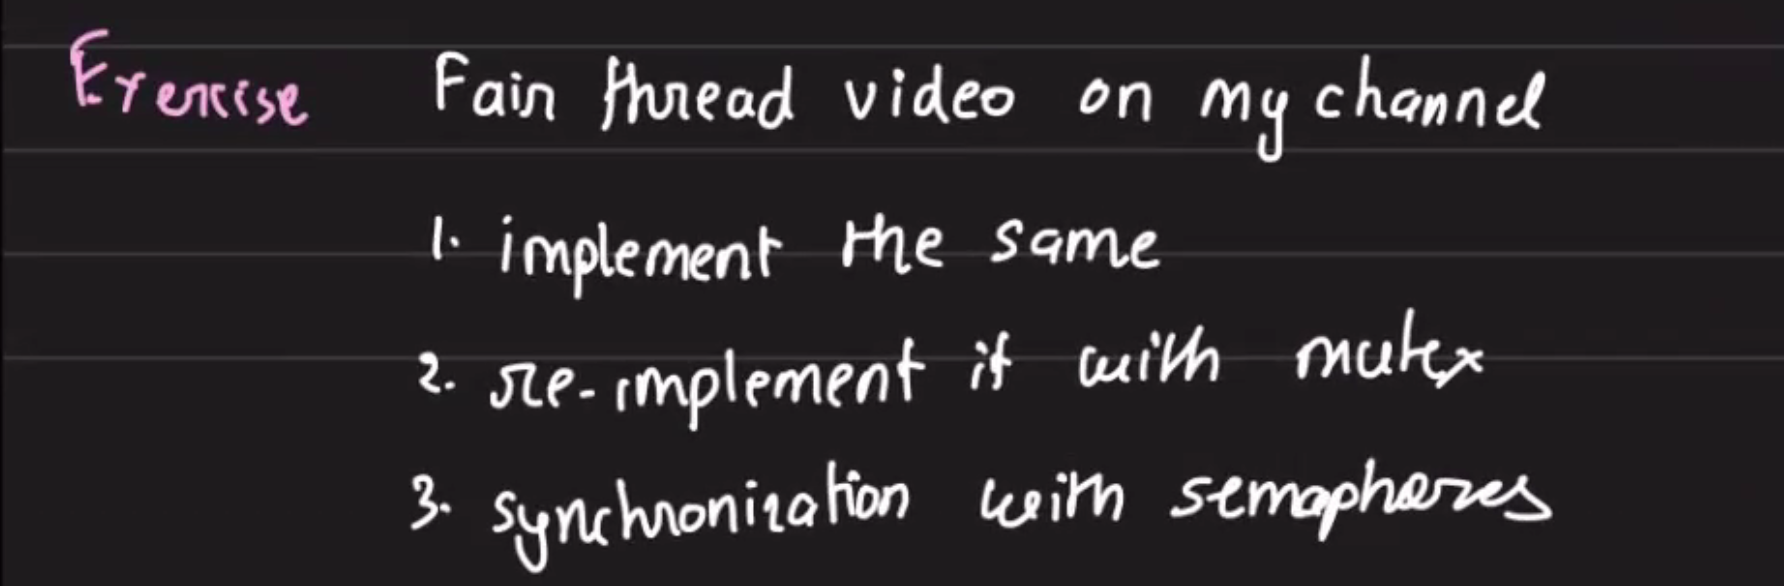 Exercise Fair thread video on my channel
1. implement the same
2. re-implement it with mutex
3. synchronization with semaphores